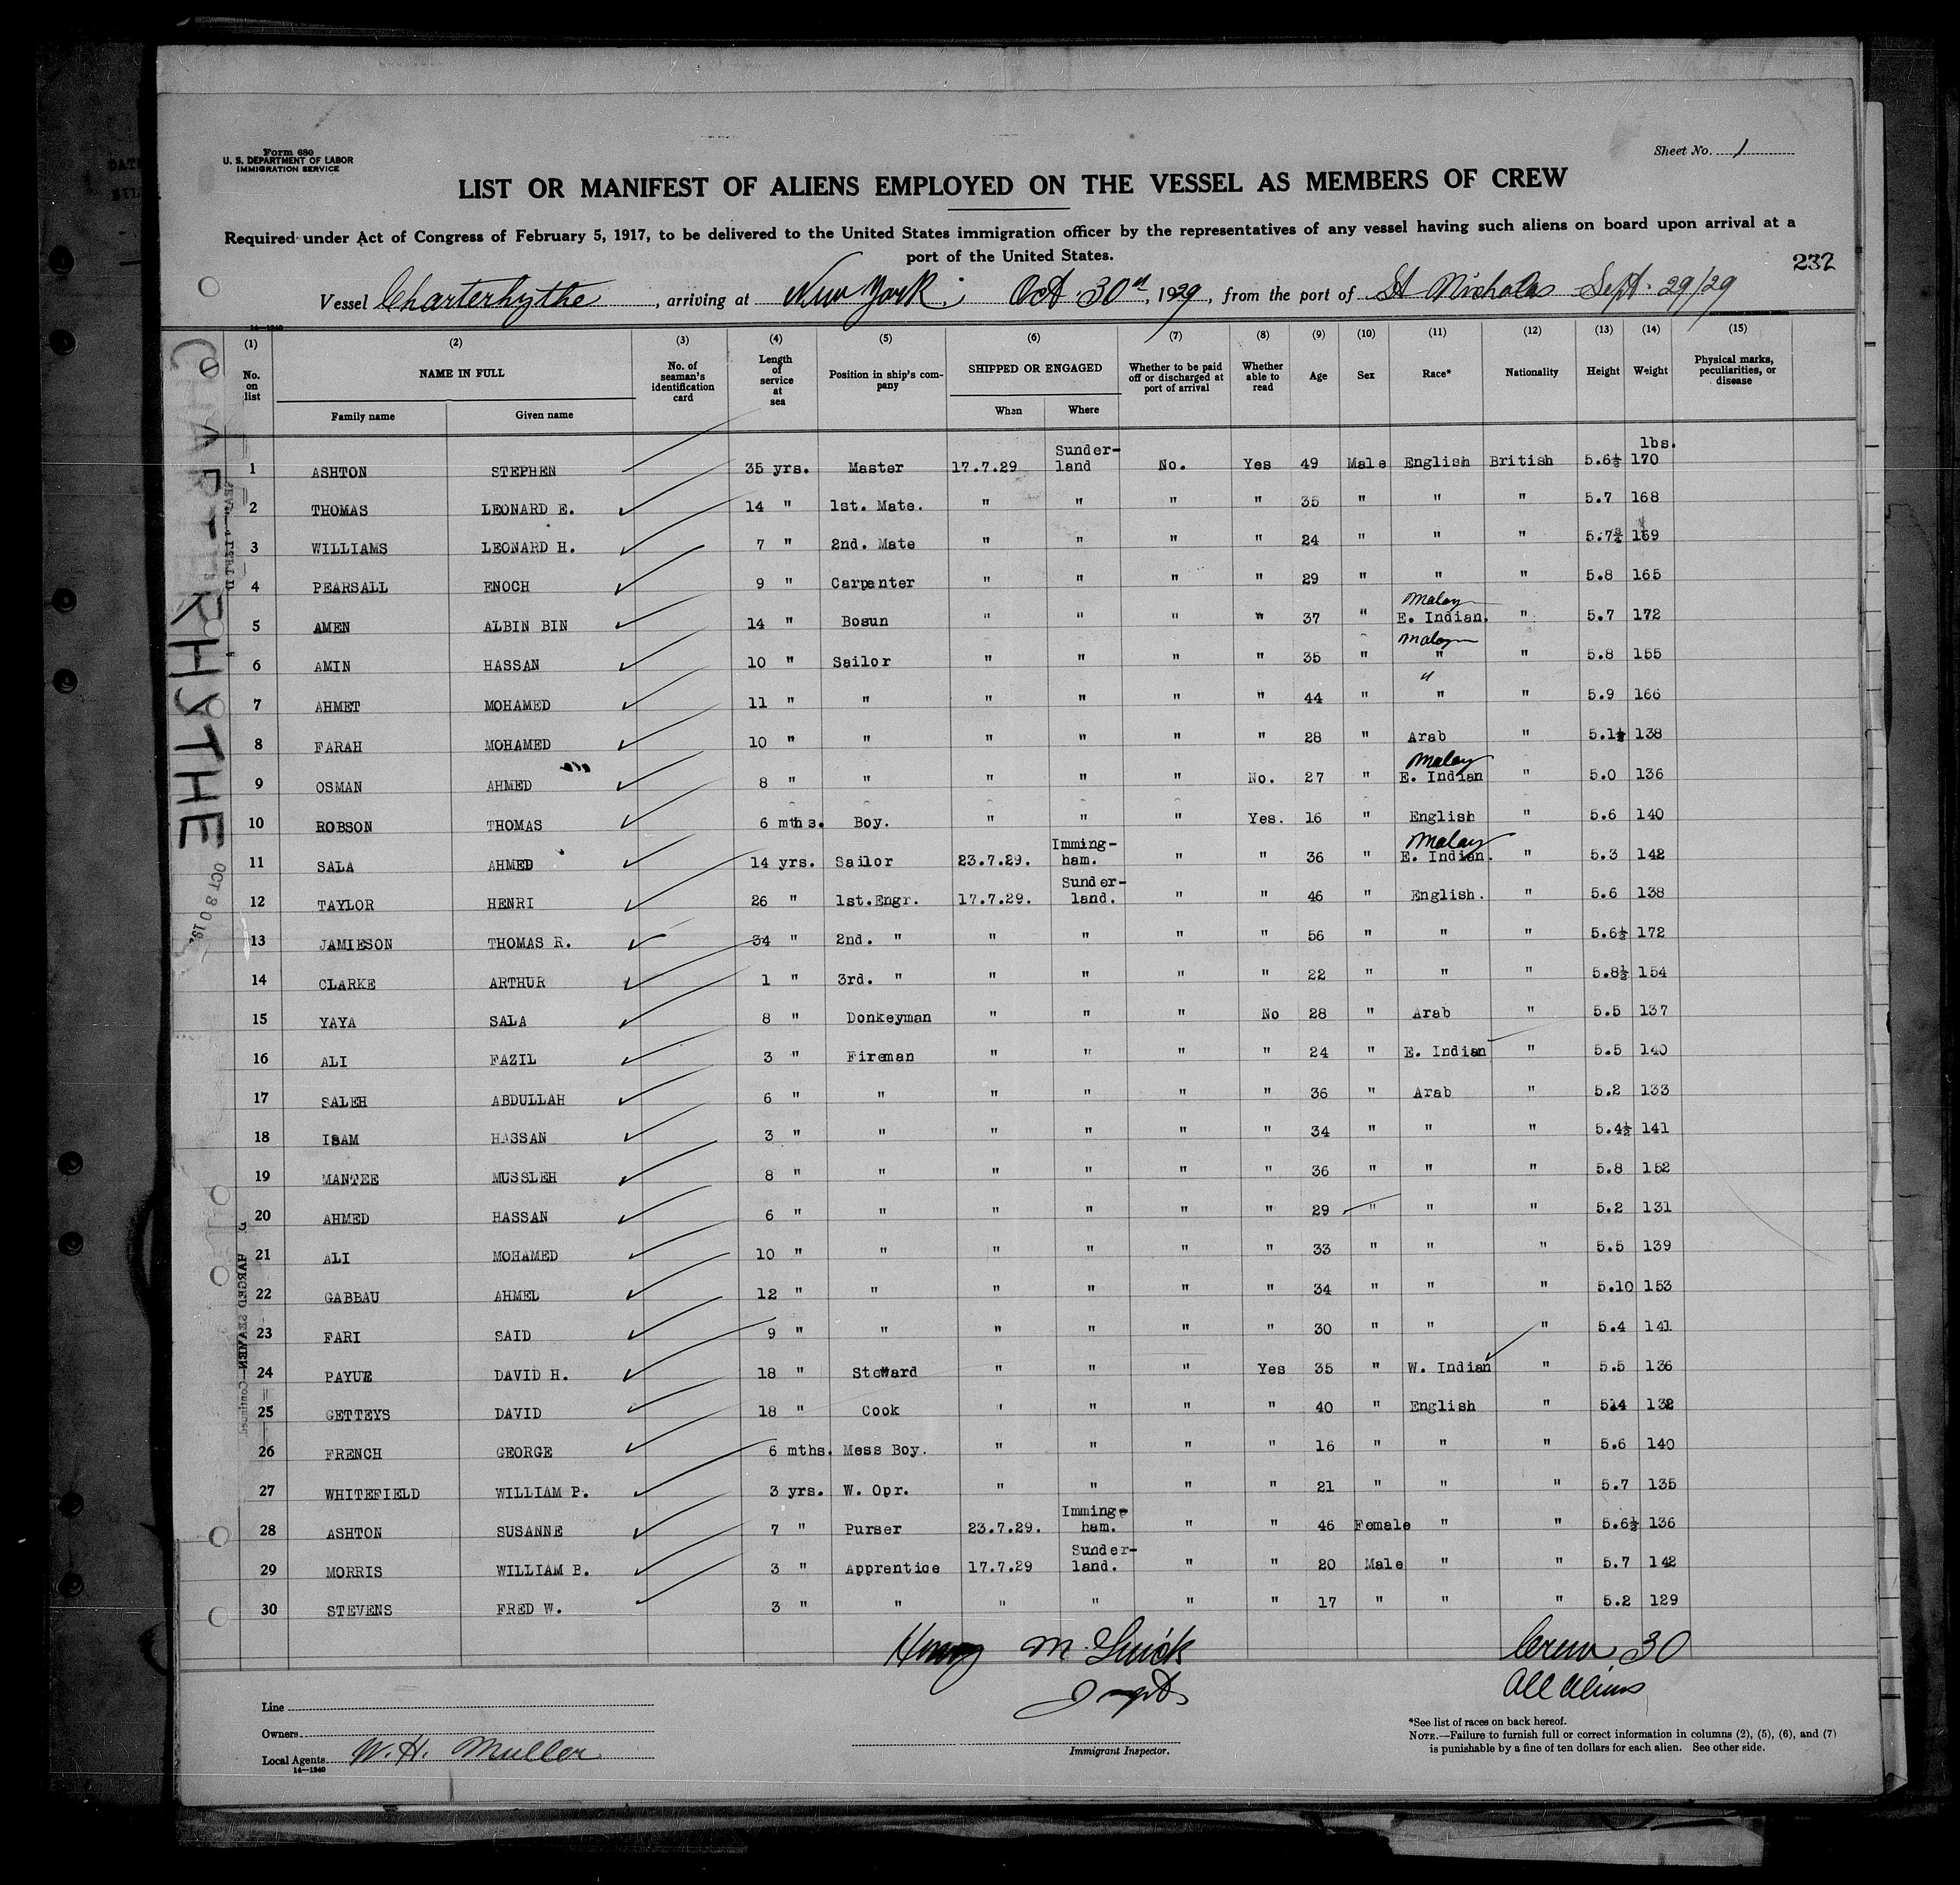 Form 680
U. S. DEPARTMENT OF LABOR
IMMIGRATION SERVICE
Sheet No. 1
LIST OR MANIFEST OF ALIENS EMPLOYED ON THE VESSEL AS MEMBERS OF CREW
Required under Act of Congress of February 5, 1917, to be delivered to the United States immigration officer by the representatives of any vessel having such aliens on board upon arrival at a
port of the United States.
237
Vessel Charterhythe, arriving at New York, Oct. 30th, 1929, from the port of St Nicholas Sept. 29/29
14—1240
(1) (2) (3) (4) (5) (6) (7) (8) (9) (10) (11) (12) (13) (14) (15)
No. on list NAME IN FULL Family name Given name No. of seaman's identification card Length of service at sea Position in ship's company SHIPPED OR ENGAGED When Where Whether to be paid off or discharged at port of arrival Whether able to read Age Sex Race* Nationality Height Weight Physical marks, peculiarities, or disease
lbs.
1 ASHTON STEPHEN 35 yrs. Master 17.7.29 Sunder-land No. Yes 49 Male English British 5.6½ 170
2 THOMAS LEONARD E. 14 " 1st. Mate. " " " " 35 " " " 5.7 168
3 WILLIAMS LEONARD H. 7 " 2nd. Mate " " " " 24 " " " 5.7½ 169
4 PEARSALL ENOCH 9 " Carpenter " " " " 29 " " " 5.8 165
5 AMEN ALBIN BIN 14 " Bosun " " " " 37 " Malay E. Indian. " 5.7 172
6 AMIN HASSAN 10 " Sailor " " " " 35 " Malay " " 5.8 155
7 AHMET MOHAMED 11 " " " " " " 44 " " " " 5.9 166
8 FARAH MOHAMED 10 " " " " " " 28 " Arab " 5.1½ 138
9 OSMAN AHMED 8 " " " " " No. 27 " Malay E. Indian " 5.0 136
10 ROBSON THOMAS 6 mths. Boy. " " " Yes. 16 " English " 5.6 140
11 SALA AHMED 14 yrs. Sailor 23.7.29. Imming-ham. " " 36 " Malay E. Indian. " 5.3 142
12 TAYLOR HENRI 26 " 1st.Engr. 17.7.29. Sunder-land. " " 46 " English. " 5.6 138
13 JAMIESON THOMAS R. 34 " 2nd. " " " " " 56 " " " 5.6½ 172
14 CLARKE ARTHUR 1 " 3rd. " " " " " 22 " " " 5.8½ 154
15 YAYA SALA 8 " Donkeyman " " " No 28 " Arab " 5.5 137
16 ALI FAZIL 3 " Fireman " " " " 24 " E. Indian " 5.5 140
17 SALEH ABDULLAH 6 " " " " " " 36 " Arab " 5.2 133
18 ISAM HASSAN 3 " " " " " " 34 " " " 5.4½ 141
19 MANTEE MUSSLEH 8 " " " " " " 36 " " " 5.8 152
20 AHMED HASSAN 6 " " " " " " 29 " " " 5.2 131
21 ALI MOHAMED 10 " " " " " " 33 " " " 5.5 139
22 GABBAU AHMED 12 " " " " " " 34 " " " 5.10 153
23 FARI SAID 9 " " " " " " 30 " " " 5.4 141
24 PAYUE DAVID H. 18 " Steward " " " Yes 35 " W. Indian " 5.5 136
25 GETTEYS DAVID 18 " Cook " " " " 40 " English " 5.4 132
26 FRENCH GEORGE 6 mths. Mess Boy. " " " " 16 " " " 5.6 140
27 WHITEFIELD WILLIAM P. 3 yrs. W. Opr. " " " " 21 " " " 5.7 135
28 ASHTON SUSANNE 7 " Purser 23.7.29. Imming-ham. " " 46 Female " " 5.6½ 136
29 MORRIS WILLIAM B. 3 " Apprentice 17.7.29 Sunder-land. " " 20 Male " " 5.7 142
30 STEVENS FRED W. 3 " " " " " " 17 " " " 5.2 129
CHARTERHYTHE
OCT 30 192
Crew 30
All Aliens
Line
Owners
Local Agents W. H. Muller
14—1240
Immigrant Inspector.
*See list of races on back hereof.
NOTE.—Failure to furnish full or correct information in columns (2), (5), (6), and (7)
is punishable by a fine of ten dollars for each alien. See other side.